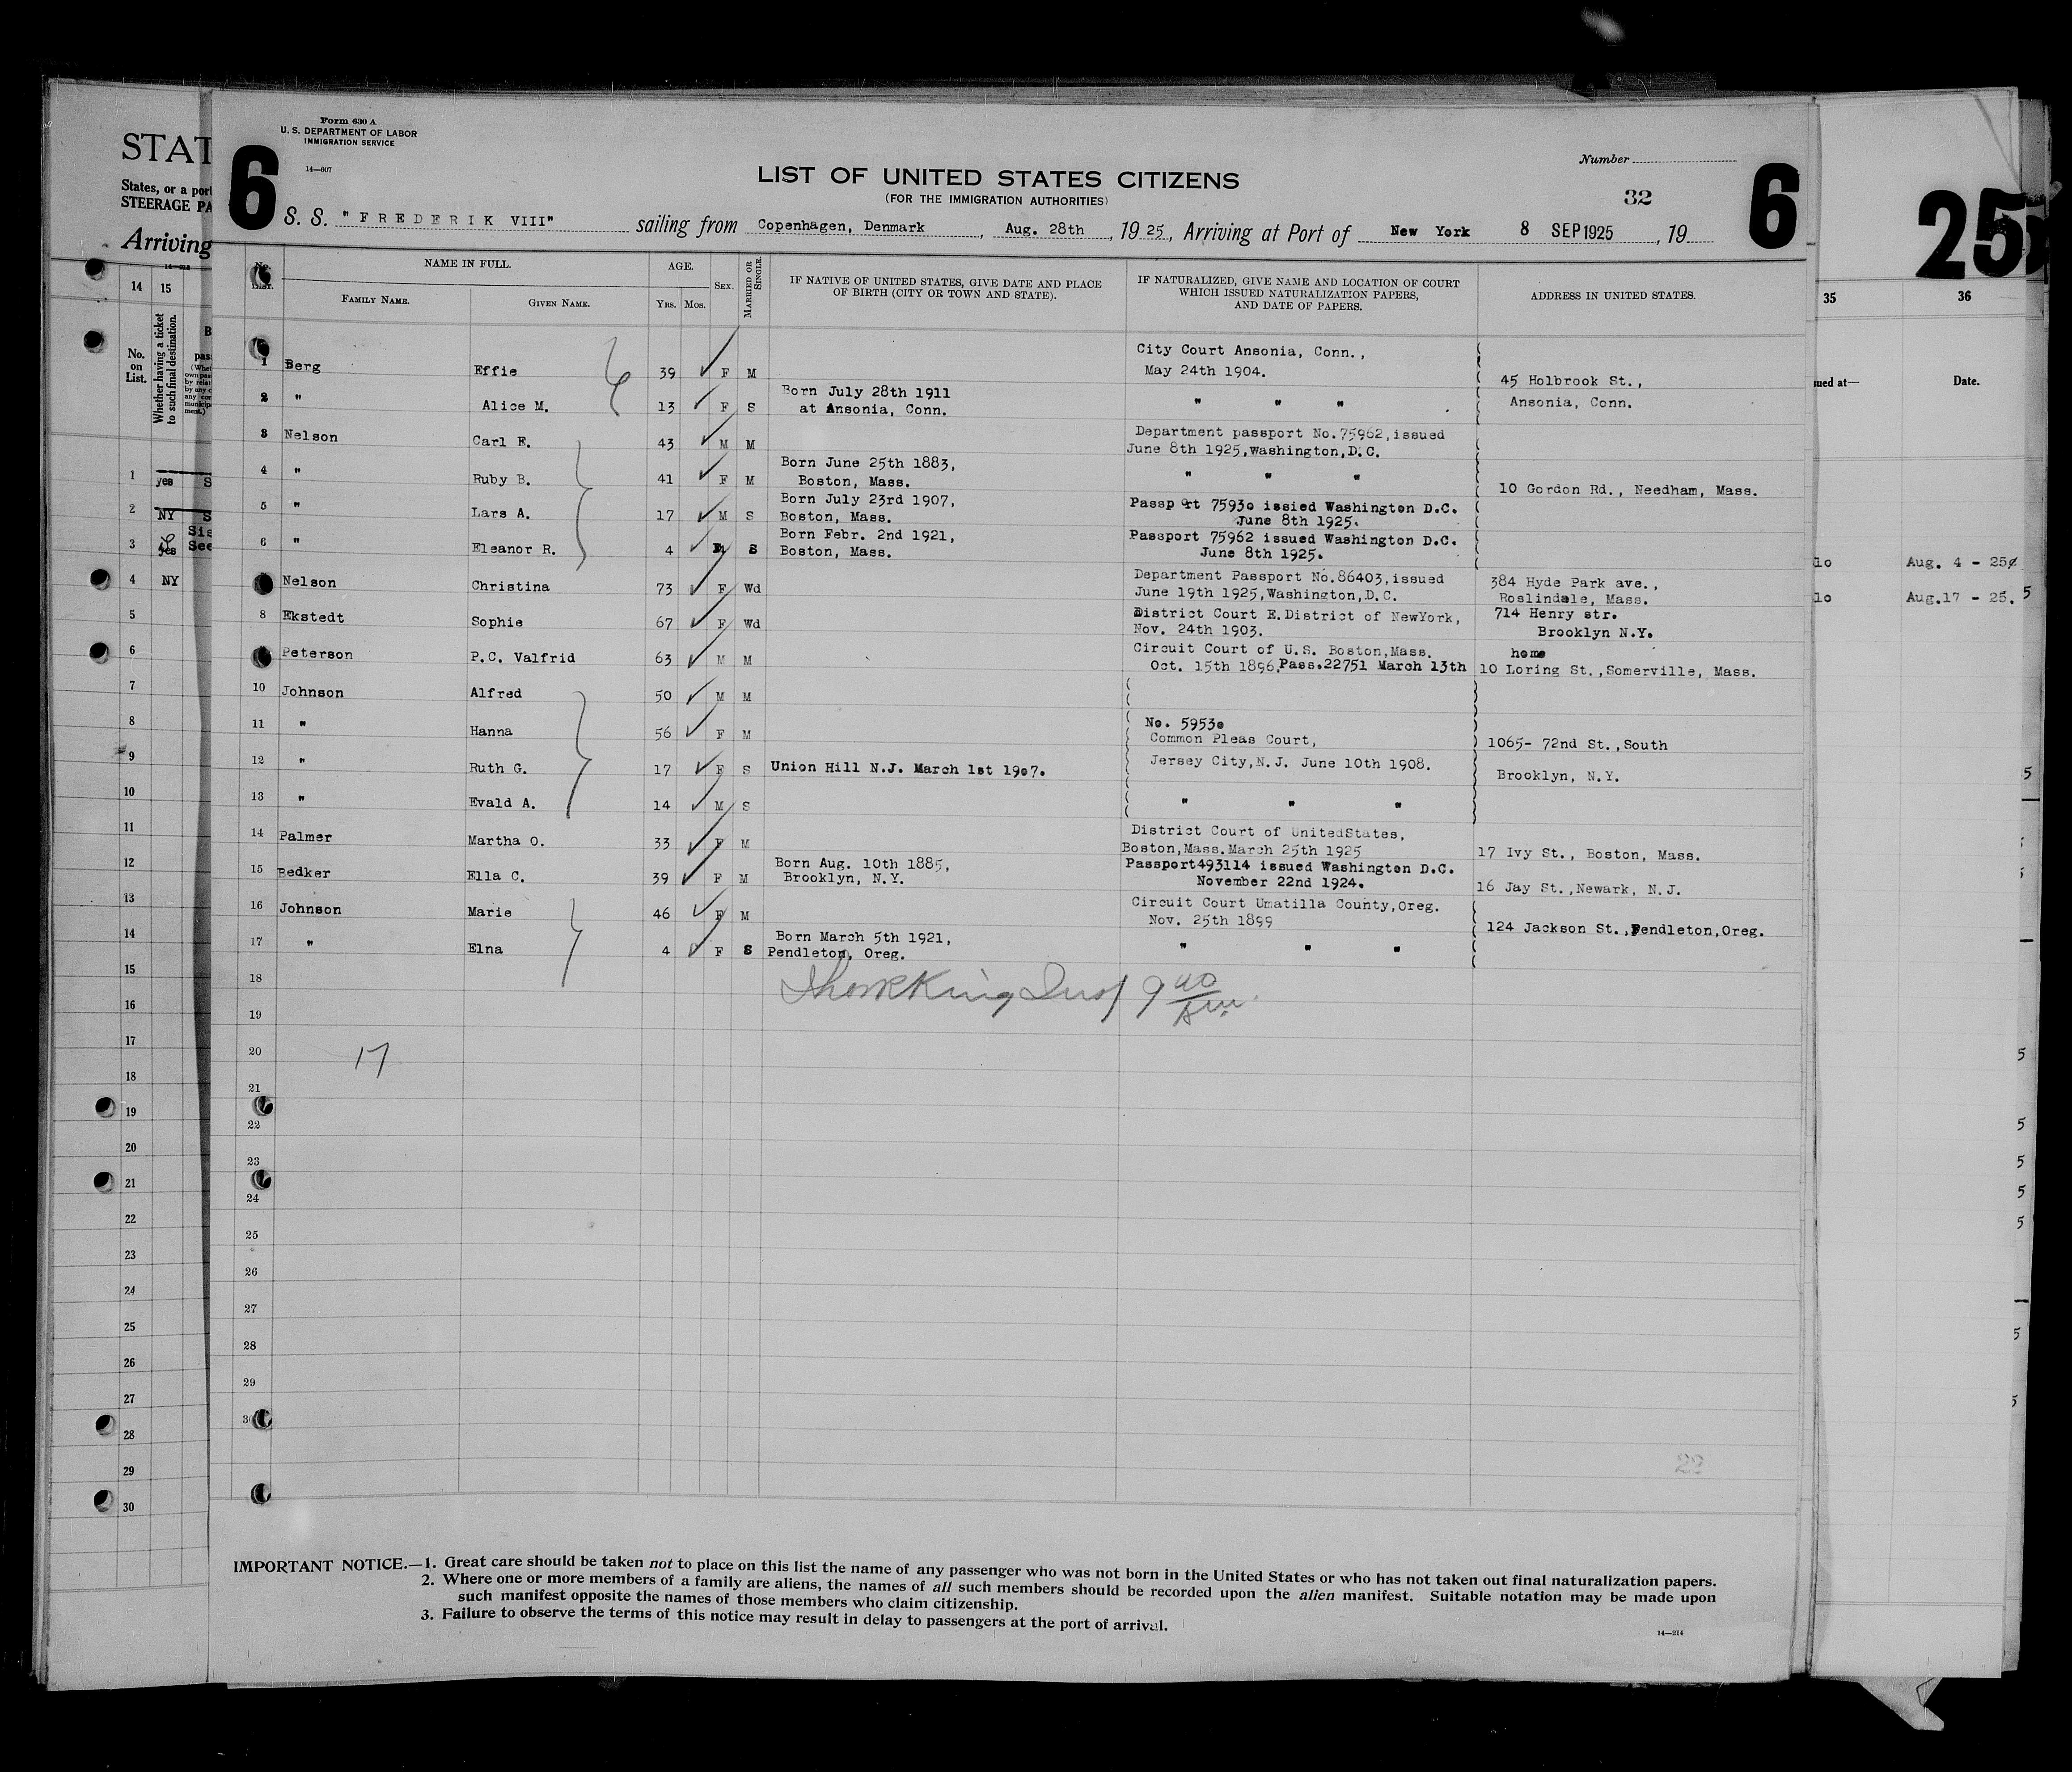 Form 630 A
U. S. DEPARTMENT OF LABOR
IMMIGRATION SERVICE
14—607
6
6
Number
32
LIST OF UNITED STATES CITIZENS
(FOR THE IMMIGRATION AUTHORITIES)
S. S. "FREDERIK VIII" sailing from Copenhagen, Denmark, Aug. 28th, 1925, Arriving at Port of New York 8 SEP 1925, 19
NAME IN FULL. AGE. SEX. MARRIED OR SINGLE. IF NATIVE OF UNITED STATES, GIVE DATE AND PLACE OF BIRTH (CITY OR TOWN AND STATE). IF NATURALIZED, GIVE NAME AND LOCATION OF COURT WHICH ISSUED NATURALIZATION PAPERS, AND DATE OF PAPERS. ADDRESS IN UNITED STATES.
FAMILY NAME. GIVEN NAME. YRS. MOS.
1 Berg Effie 39 F M City Court Ansonia, Conn., May 24th 1904. 45 Holbrook St., Ansonia, Conn.
2 " Alice M. 13 F S Born July 28th 1911 at Ansonia, Conn. " " "
3 Nelson Carl E. 43 M M Department passport No.75962,issued June 8th 1925,Washington,D.C.
4 " Ruby B. 41 F M Born June 25th 1883, Boston, Mass. " " " 10 Gordon Rd., Needham, Mass.
5 " Lars A. 17 M S Born July 23rd 1907, Boston, Mass. Passport 75930 issied Washington D.C. June 8th 1925.
6 " Eleanor R. 4 S Born Febr. 2nd 1921, Boston, Mass. Passport 75962 issued Washington D.C. June 8th 1925.
Nelson Christina 73 F Wd Department Passport No.86403,issued June 19th 1925,Washington,D.C. 384 Hyde Park ave., Roslindale, Mass.
8 Ekstedt Sophie 67 F Wd District Court E.District of NewYork, Nov. 24th 1903. 714 Henry str. Brooklyn N.Y.
Peterson P.C. Valfrid 63 M M Circuit Court of U.S. Boston,Mass. Oct. 15th 1896.Pass.22751 March 13th home 10 Loring St.,Somerville, Mass.
10 Johnson Alfred 50 M M
11 " Hanna 56 F M No. 59530 Common Pleas Court, 1065- 72nd St.,South
12 " Ruth G. 17 F S Union Hill N.J. March 1st 1907. Jersey City,N.J. June 10th 1908. Brooklyn, N.Y.
13 " Evald A. 14 M S " " "
14 Palmer Martha O. 33 F M District Court of UnitedStates, Boston,Mass.March 25th 1925 17 Ivy St., Boston, Mass.
15 Bedker Ella C. 39 F M Born Aug. 10th 1885, Brooklyn, N.Y. Passport493114 issued Washington D.C. November 22nd 1924. 16 Jay St.,Newark, N.J.
16 Johnson Marie 46 F M Circuit Court Umatilla County,Oreg. Nov. 25th 1899 124 Jackson St.,Pendleton,Oreg.
17 " Elna 4 F S Born March 5th 1921, Pendleton, Oreg. " " "
18
19
20 17
21
22
23
24
25
26
27
28
29
30
22
IMPORTANT NOTICE.—1. Great care should be taken not to place on this list the name of any passenger who was not born in the United States or who has not taken out final naturalization papers.
2. Where one or more members of a family are aliens, the names of all such members should be recorded upon the alien manifest. Suitable notation may be made upon
such manifest opposite the names of those members who claim citizenship.
3. Failure to observe the terms of this notice may result in delay to passengers at the port of arrival.
14—214
STAT
States, or a port
STEERAGE PA
Arriving
14 15
No. on List.
Whether having a ticket to such final destination.
1 yes S
2 NY S
3 yes Sis See
4 NY
5
6
7
8
9
10
11
12
13
14
15
16
17
18
19
20
21
22
23
24
25
26
27
28
29
30
25
35 36
ued at— Date.
lo Aug. 4 - 25
lo Aug.17 - 25. 5
5
5
5
5
5
5
5
5